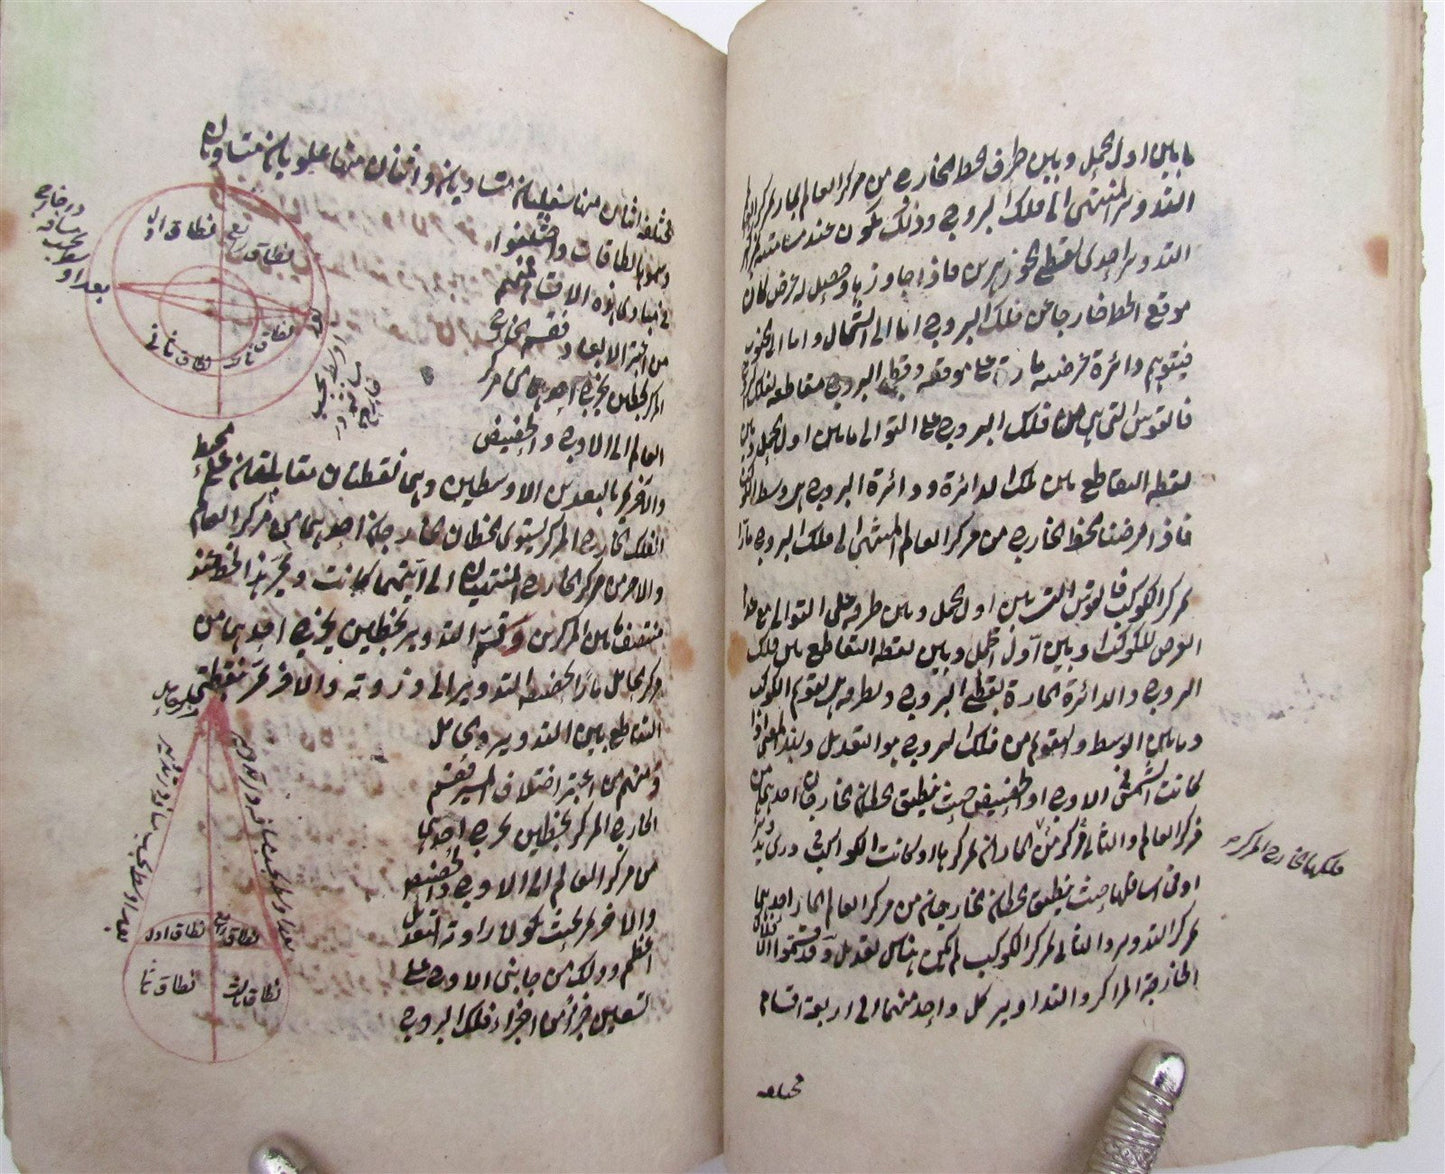 ما بين اول الحمل وبين طرف الخط الخارج من مركز العالم المار بمركز
التدوير المنتهى الى فلك البروج وذلك يكون عند مسامتة مركز
التدوير احدى نقطتى الجوزهرين فاذا جاوزها وحصل له عرض كان
موقع الخط خارجا عن فلك البروج اما الى الشمال واما الى الجنوب
فيتوهم دائرة عرضية مارة على موقعه وقطبى البروج مقاطعة لفلك البروج
فالقوس التى هى من فلك البروج على التوالى ما بين اول الحمل وبين
نقطة التقاطع بين تلك الدائرة ودائرة البروج هى وسط الكوكب
فاذا فرضنا الخط الخارج من مركز العالم المنتهى الى فلك البروج مارا
بمركز الكوكب فالقوس التى بين اول الحمل وبين طرفه على التوالى مع عدم
العرض للكوكب او بين اول الحمل وبين نقطة التقاطع بين فلك
البروج والدائرة المارة بقطبى البروج وبطرفه هى تقويم الكوكب
وما بين الوسط والتقويم من فلك البروج هو التعديل ولهذا المعنى اذا
كانت الشمس فى الاوج او الحضيض حيث ينطبق الخطان الخارجان احدهما من
مركز العالم والثانى من مركز الخارج المارانة بمركزها او كانت الكواكب فى ذرى
او فى اسافلها حيث ينطبق الخطان الخارجان من مركز العالم المار احدهما
بمركز التدوير والثانى بمركز الكوكب لم يكن هناك تعديل وقد قسموا الافلاك
الخارجة المراكز والتداوير كل واحد منهما الى اربعة اقسام
فلكها الخارج المركز
مختلفة
مختلفة اثنان منها سفليان متساويان واثنان منها علويان متساويان
وسموها نطاقات واختلفوا
فى مبادى هذه الاقسام فمنهم
من اعتبر الابعاد فقسم الخارج
المركز بخطين يخرج احدهما من مركز
العالم الى الاوج والحضيض
والاخر يمر بالبعدين الاوسطين وهما نقطتان متقابلتان على محيط
الفلك الخارج المركز يستوى الخطان الخارجان احدهما من مركز العالم
والاخر من مركز الخارج المنتهيان الى ايتهما كانت ويمر هذا الخط عند
منتصف ما بين المركزين وقسم التدوير بخطين يخرج احدهما من
مركز الحامل مارا بحضيض التدوير الى ذروته والاخر يمر بنقطتى
التقاطع بين التدوير والحامل
ومنهم من اعتبر اختلاف المسير فقسم
الخارج المركز بخطين يخرج احدهما
من مركز العالم الى الاوج والحضيض
والاخر بحيث يكون زاوية التعديل
اعظم وذلك من جانبى الاوج على
تسعين جزءا من اجزاء فلك البروج
نطاق اول
نطاق رابع
نطاق ثانى
نطاق ثالث
بعد اوسط
مركز الحامل
نطاق اول
نطاق رابع
نطاق ثانى
نطاق ثالث